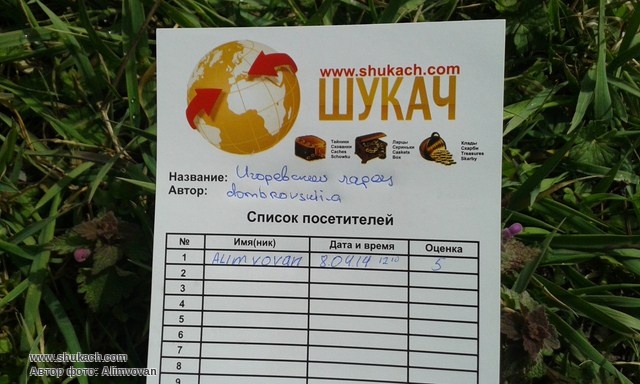 www.shukach.com
ШУКАЧ
Тайники Ларцы Клады
Сховanки Скрыньки Скарби
Caches Caskets Treasures
Schowku Box Skarby
Название: Игоревский ларец
Автор: dombrovskii.a
Список посетителей
№ Имя(ник) Дата и время Оценка
1 ALIMVOVAN 8.04.14 12:10 5
2
3
4
5
6
7
8
9
www.shukach.com
Автор фото: Alimvovan